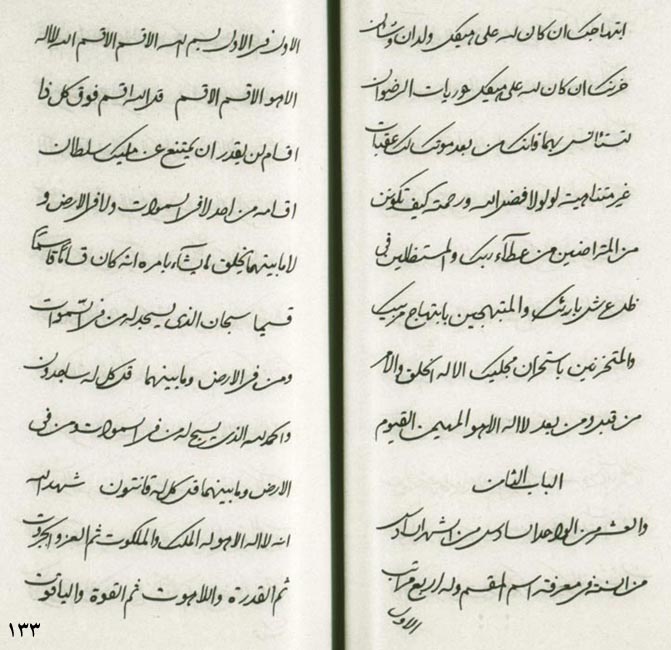 ابتهاجك ان كان لله على هيكل ولدان و
حزنك ان كان لله على هيكل حوريات الرضوان
لتستانس بهما فانك من بعد موتك لك عقبات
غير متناهية لو لا فضل الله ورحمته كيف تكونن
من المتراضين من عطآء ربك والمستظلين في
ظل عرش بارئك والمتبهجين بابتهاج مربيك
والمتحزنين باستحزان مجليك الا له الخلق والامر
من قبل ومن بعد لا اله الا هو المهيمن القيوم
الباب الثامن
والعشر من الواحد السادس من الشهر السادس
من السنة في معرفة اسم المقسم وله اربع مراتب
الاول
الاول في الاول بسم الله الاقسم الاقسم الله لا اله
الا هو الاقسم الاقسم قل الله اقسم فوق كل ذا
اقسام لن يقدر ان يمتنع عن مليك سلطان
اقسامه من احد لا في السموات ولا في الارض و
لا ما بينهما يخلق ما يشآء بامره انه كان قساما قاسما
قسيما سبحان الذي يسجد له من في السموات
ومن في الارض وما بينهما قل كل له ساجدون
والحمد لله الذي يسبح له من في السموات ومن في
الارض وما بينهما قل كل له قانتون شهد الله
انه لا اله الا هو له الملك والملكوت ثم العز والجبروت
ثم القدرة واللاهوت ثم القوة والياقوت
١٣٣